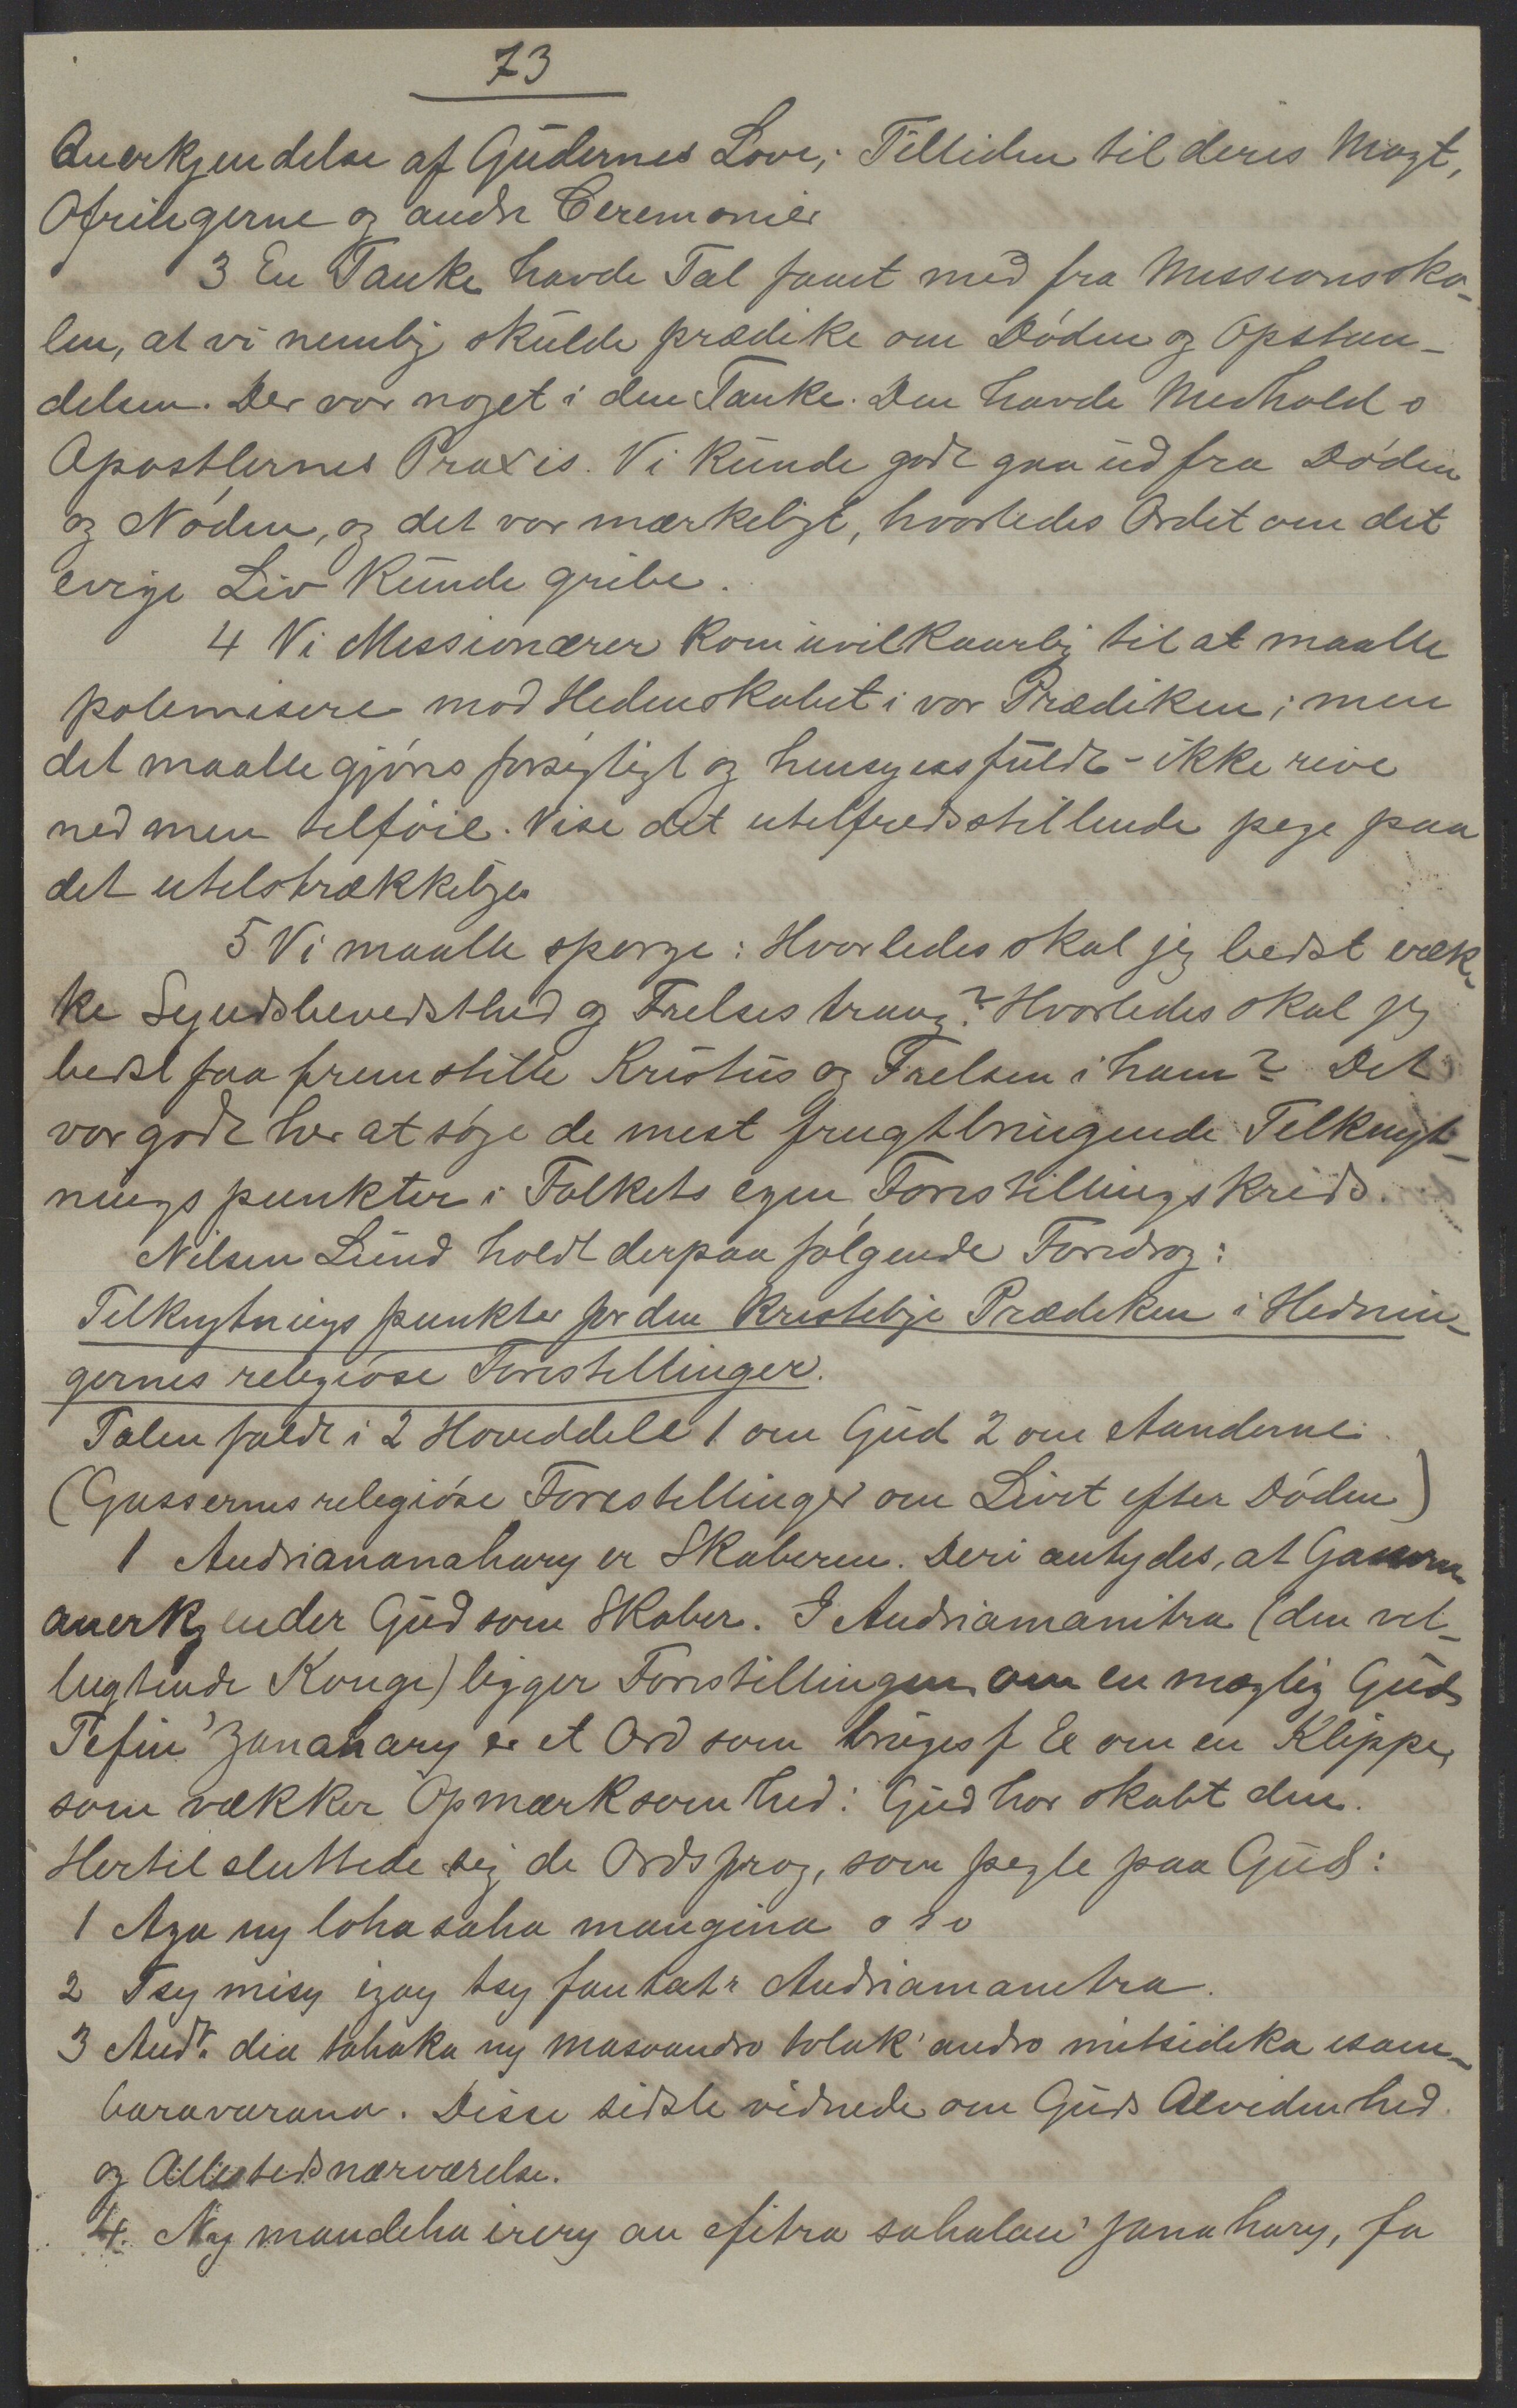 73
Anerkjendelse af Gudernes Love, Tilliden til deres Magt,
Ofringerne og andre Ceremonier
3 En Tanke havde Tal faaet med fra Missionssko-
len, at vi nemlig skulde prædike om Døden og Opstan-
delsen. Der var noget i den Tanke. Den havde Medhold i
Apostlernes Praxis. Vi kunde godt gaa ud fra Døden
og Nøden, og det var mærkeligt, hvorledes Ordet om det
evige Liv kunde gribe.
4 Vi Missionærer kom uvilkaarlig til at maatte
polemisere mod Hedenskabet i vor Prædiken; men
det maatte gjøres forsigtigt og hensynsfuldt - ikke rive
ned men tilføie. Vise det utilfredsstillende pege paa
det utilstrækkelige
5 Vi maatte spørge: Hvorledes skal jeg bedst væk-
ke Syndsbevidsthed og Frelsestrang? Hvorledes skal jeg
bedst faa fremstille Kristus og Frelsen i ham? Det
var godt her at søge de mest frugtbringende Tilknyt-
ningspunkter i Folkets egen Forestillingskreds.
Nilsen Lund holdt derpaa følgende Foredrag:
Tilknytningspunkter for den kristelige Prædiken i Hednin-
gernes religiøse Forestillinger.
Talen faldt i 2 Hoveddele 1 om Gud 2 om Aanderne.
(Gassernes religiøse Forestillinger om Livet efter Døden)
1 Andriananahary er Skaberen. Deri antydes, at Gasserne
anerkjender Gud som Skaber. I Andriamanitra (den vel-
lugtende Konge) ligger Forestillingen om en mægtig Gud
Tefin' Zanahary er et Ord som bruges f Ex om en Klippe,
som vækker Opmærksomhed: Gud har skabt den.
Hertil sluttede sig de Ordsprog, som pegte paa Gud:
1 Aza ny lohasaha mangina o s v
2 Tsy misy izay tsy fantatr Andriamanitra.
3 Andr. dia tahaka ny masoandro tolak' andro mitsidika isam-
baravarana. Disse sidste vidnede om Guds Alvidenhed
og Allestedsnærværelse.
4. Ny mandeha irery an efitra sahalan' Janahary, fa